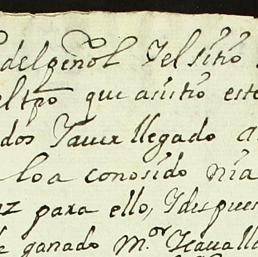 delpeñol Yel sitio
eltpō que asistio este
dos Yaver llegado a
loa conosido nia
para ello, Ydespues
ganado m.or Ycavall